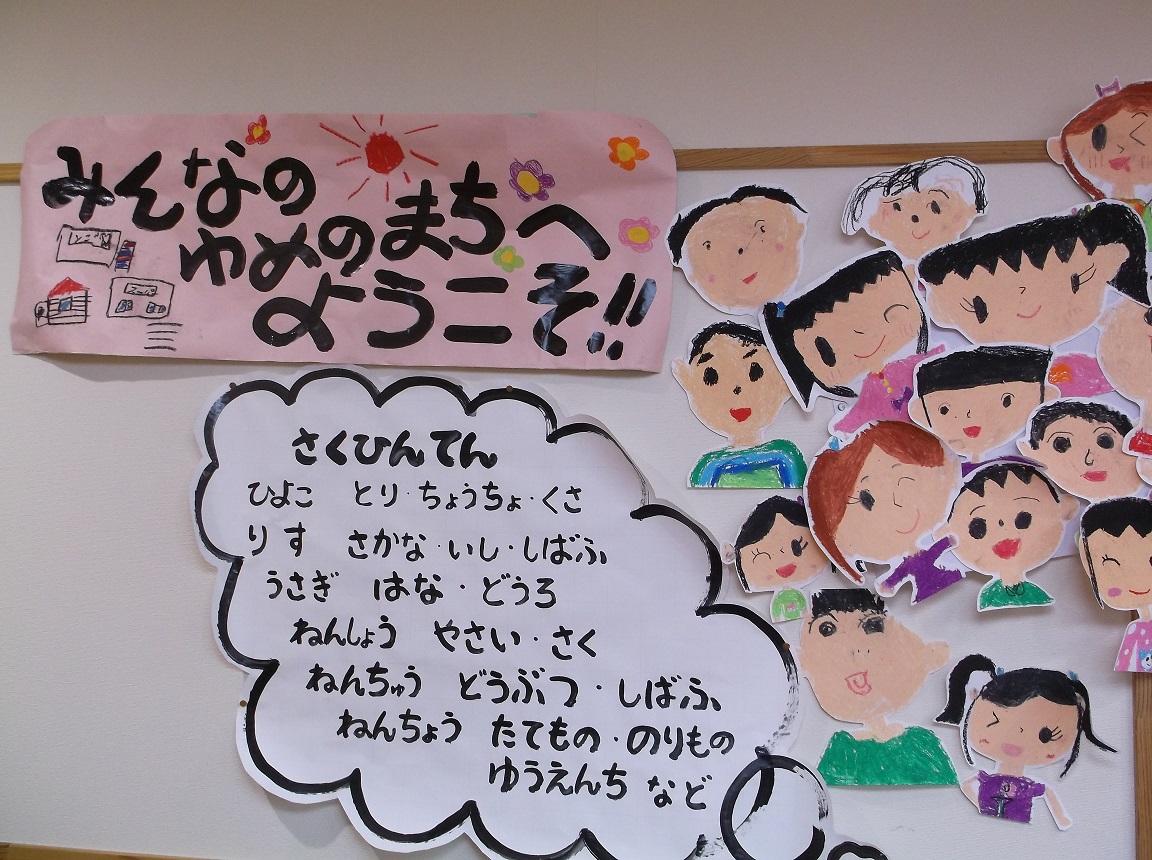 みんなの
ゆめのまちへ
ようこそ!!
さくひんてん
ひよこ とり・ちょうちょ・くさ
りす さかな・いし・しばふ
うさぎ はな・どうろ
ねんしょう やさい・さく
ねんちゅう どうぶつ・しばふ
ねんちょう たてもの・のりもの
ゆうえんち など